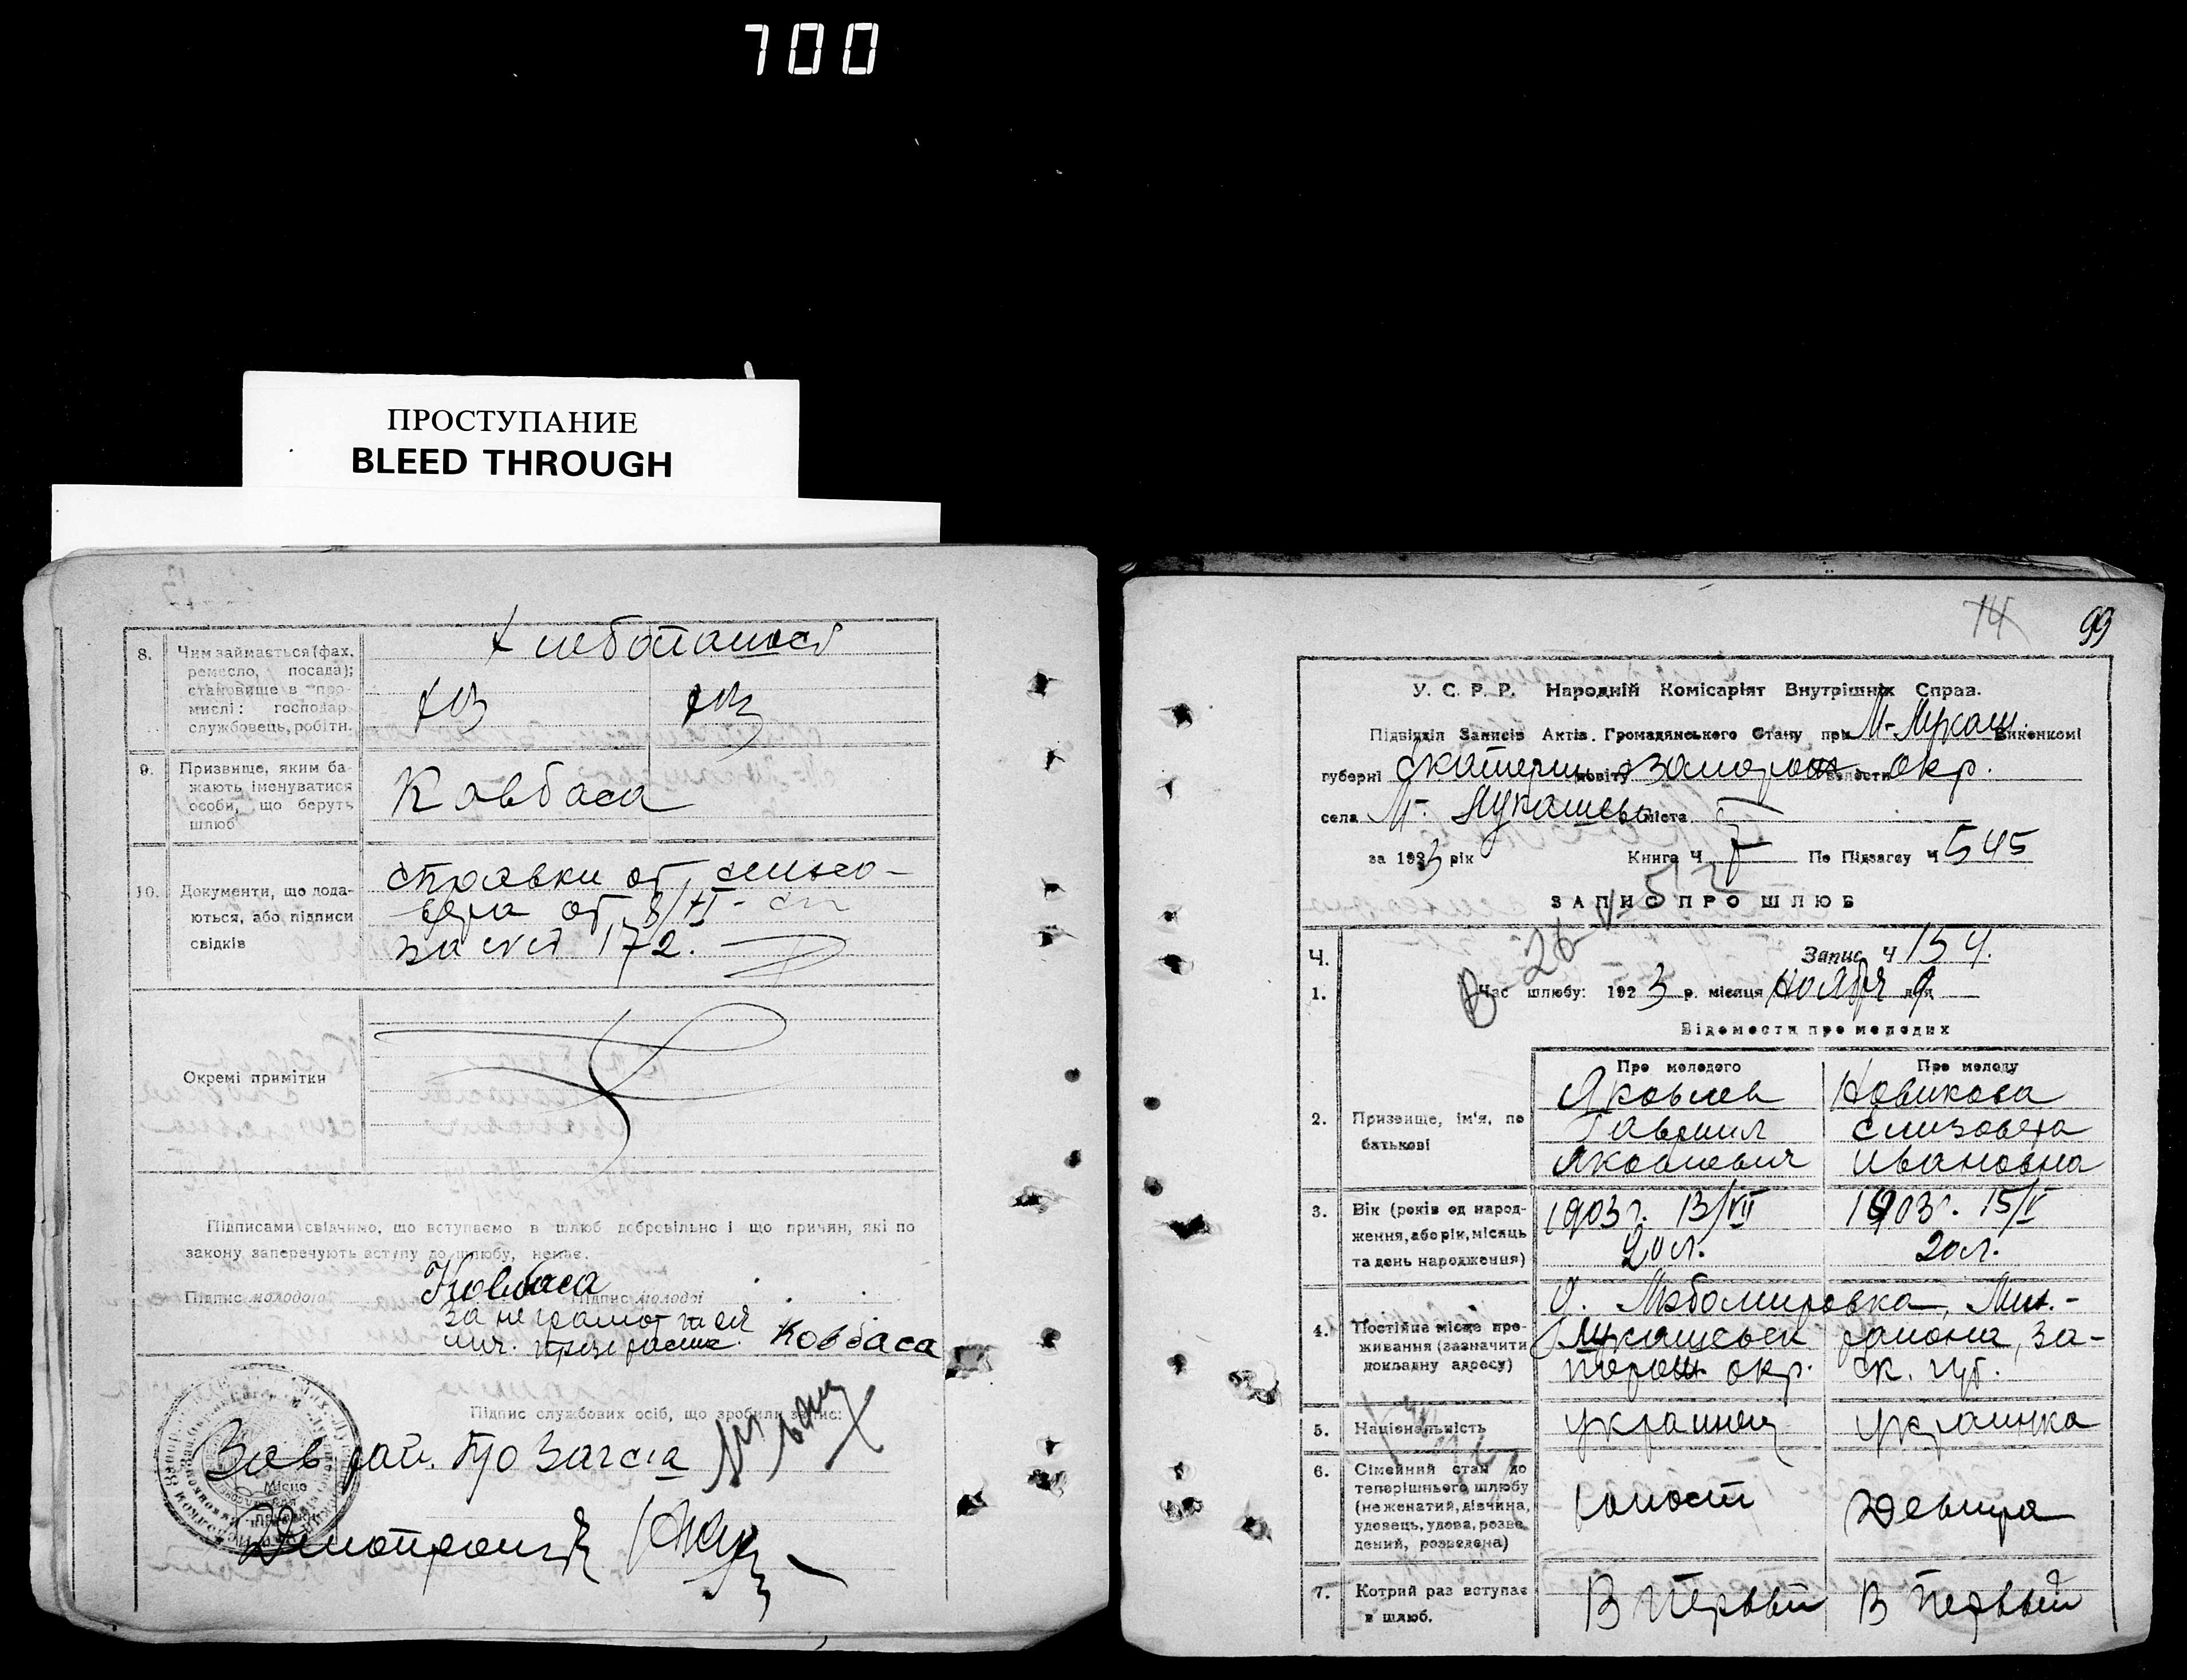 700
ПРОСТУПАНИЕ
BLEED THROUGH
8. Чим займається (фах,
ремесло, посада);
становище в про-
мислі: господар
службовець, робітн.
Хлебопашест
9. Призвище, яким ба-
жають іменуватися
особи, що беруть
шлюб
Ковбаса
10. Документи, що пода-
ються, або підписи
свідків
справки от сельсо-
от 8/XI-
за № 172.
Окремі примітки
Підписами свідчимо, що вступаємо в шлюб добревільно і що причин, які по
закону заперечують вступу до шлюбу, немає.
Підпис молодого Ковбаса Підпис молодої
за неграмотная
Ковбаса
Підпис службових осіб, що зробили запис:
Зав рай. п/о Загса
Місце
печатки
14 99
У. С. Р. Р. Народній Комісаріят Внутрішніх Справ.
Підвідділ Записів Актів Громадянського Стану при М-Лукаш. Виконкомі
губерні Екатерин повіту Запорож волости окр.
села М. Лукашево міста
за 1923 рік Книга Ч 7 По Підзагсу Ч 545
ЗАПИС ПРО ШЛЮБ
Ч. Запис Ч 154.
1. Час шлюбу: 1923 р. місяця Ноября дня 9
Відомости про молодих
Про молодого Про молоду
2. Призвище, ім'я, по
батькові
Яковлев Новикова
Гавриил Елизавета
Яковлевич Ивановна
3. Вік (років од народ-
ження, або рік, місяць
та день народження)
1903 г. 13/VII 1903 г. 15/V
20 л. 20 л.
4. Постійне місце про-
живання (зазначити
докладну адресу)
Мал.-
Лукашевск района, За-
порож. окр. Ек. губ.
5. Національність
украинец украинка
6. Сімейний стан до
теперішнього шлюбу
(неженатий, дівчина,
удовець, удова, розве-
дений, розведена)
холост девица
7. Котрий раз вступає
в шлюб.
В первый В первый